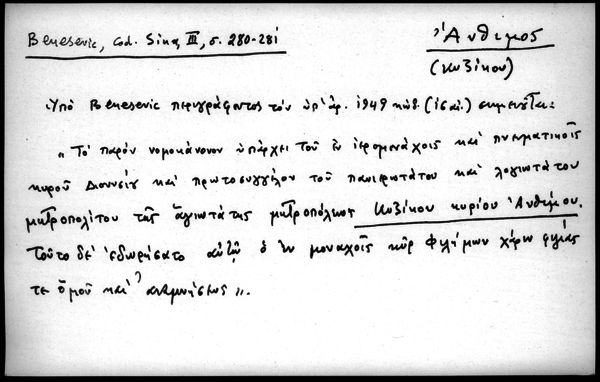 Benesevic, Cod. Sina, III, σ. 280-281
Ἄνθιμος
(Κυζίκου)
Ὑπὸ Benesevic περιγράφοντος τὸν ὑπ' ἀρ. 1949 κώδ. (ις αἰ.) σημειοῦται:
"Τὸ παρὸν νομοκάνονον ὑπάρχει τοῦ ἐν ἱερομονάχοις καὶ πνευματικοῖς
κυροῦ Διονυσίου καὶ πρωτοσυγγέλου τοῦ πανιερωτάτου καὶ λογιωτάτου
μητροπολίτου τῆς ἁγιωτάτης μητροπόλεως Κυζίκου κυρίου Ἀνθίμου.
Τοῦτο δὲ ἐδωρήσατο αὐτῷ ὁ ἐν μοναχοῖς κὺρ Φιλήμων χάριν φιλίας
τε ὁμοῦ καὶ ἀναμνήσεως".